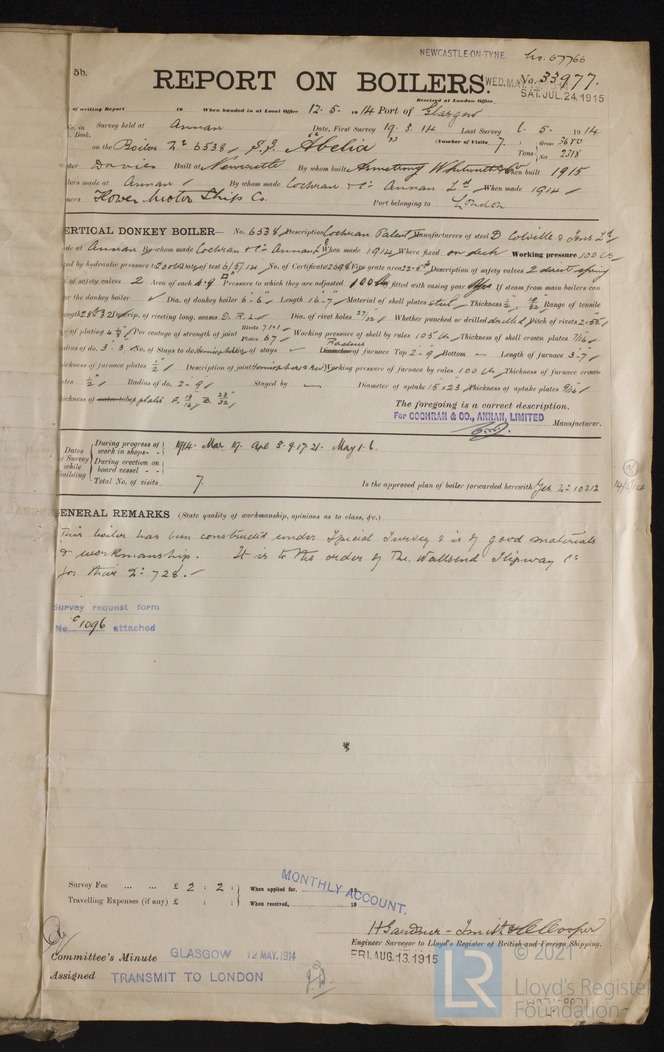 NEWCASTLE-ON-TYNE No. 67766
5b. REPORT ON BOILERS. No. 33977.
WED. MAY
SAT. JUL. 24. 1915
Received at London Office
of writing Report 19 When handed in at Local Office 12. 5. 19 14 Port of Glasgow
No. in Survey held at Annan Date, First Survey 19. 3. 14 Last Survey 6. 5. 1914
Book. on the Boiler No 6538, S.S. "Abelia" (Number of Visits 7.) Gross 3680
Tons Net 2318
Davies Built at Newcastle By whom built Armstrong Whitworth & Co When built 1915
made at Annan By whom made Cochran & Co Annan Ld When made 1914
Port belonging to London
VERTICAL DONKEY BOILER— No. 6538 Description Cochran Patent Manufacturers of steel D Colville & Sons Ld
Made at Annan By whom made Cochran & Co Annan Ld When made 1914 Where fixed on deck Working pressure 100 lbs
by hydraulic pressure to 200 lbs Date of test 6/5/14 No. of Certificate Fire grate area Description of safety valves 2 direct spring
of safety valves 2 Area of each Pressure to which they are adjusted 100 lbs fitted with easing gear Yes If steam from main boilers can
for the donkey boiler Dia. of donkey boiler 6-6 Length 16-7 Material of shell plates steel Thickness Range of tensile
strength 28 & 32 Descrip. of riveting long. seams D.R.L. Dia. of rivet holes 27/32 Whether punched or drilled drilled Pitch of rivets
of plating Per centage of strength of joint Rivets 71.1 Plates 67 Working pressure of shell by rules 105 lbs Thickness of shell crown plates 7/16
Radius of do. 3-3 No. of Stays to do Hemispherical of stays Radius of furnace Top 2-9 Bottom Length of furnace 3-7
Thickness of furnace plates 1/2 Description of joint Working pressure of furnace by rules 100 lbs Thickness of furnace crown
plates 1/2 Radius of do. 2-9 Stayed by Diameter of uptake 15 x 23 Thickness of uptake plates 9/16
Thickness of water tube plates
The foregoing is a correct description.
For COCHRAN & CO., ANNAN, LIMITED
Manufacturer.
Dates of Survey while building
During progress of work in shops - - 1914. Mar 19. Apl 3. 9. 17. 21. May 1. 6.
During erection on board vessel - -
Total No. of visits 7. Is the approved plan of boiler forwarded herewith Yes. No 10212
GENERAL REMARKS (State quality of workmanship, opinions as to class, &c.)
This boiler has been constructed under Special Survey & is of good materials
& workmanship. It is to the order of The Wallsend Slipway Co
for their No 728.
Survey request form
No. C 1096 attached
Survey Fee ... ... £ 2 : 2 : When applied for, 19
MONTHLY ACCOUNT.
Travelling Expenses (if any) £ : : When received, 19
H Gardner-Smith & Cooper
Engineer Surveyor to Lloyd's Register of British and Foreign Shipping.
Committee's Minute GLASGOW 12 MAY. 1914 FRI. AUG. 13. 1915
Assigned TRANSMIT TO LONDON
© 2021
LR Lloyd's Register
Foundation